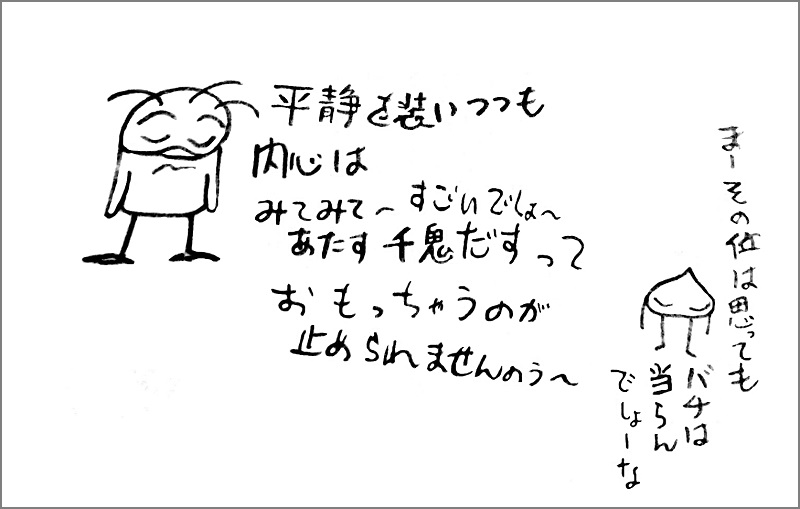 平静を装いつつも
内心は
みてみて〜すごいでしょ〜
あたす千鬼だすって
おもっちゃうのが
止められませんのう〜
まーその位は思っても
バチは
当らん
でしょーな